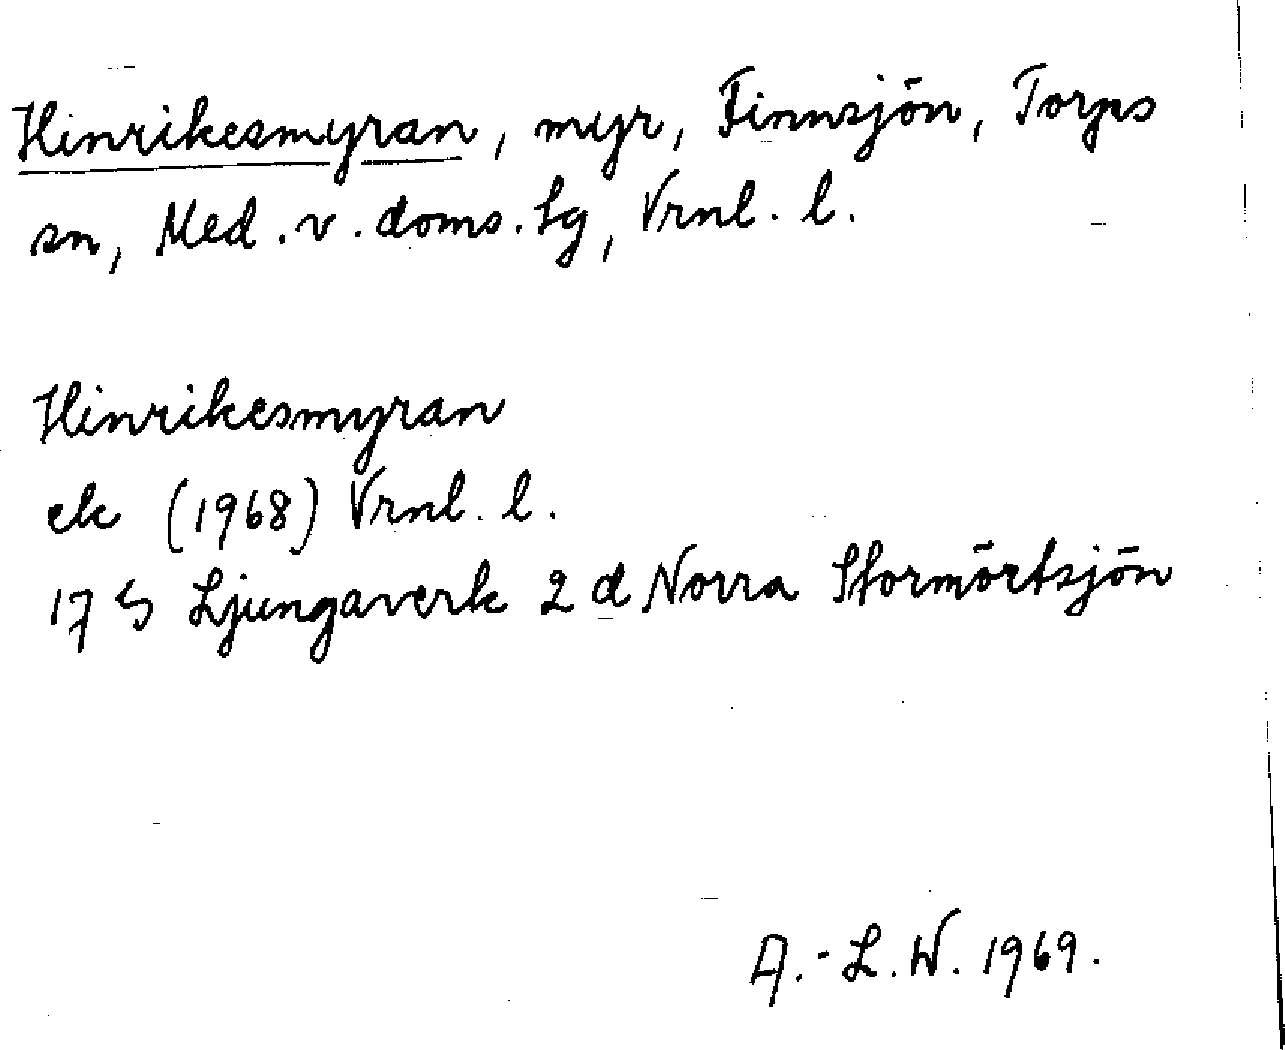 Hinrikesmyran, myr, Finnsjön, Torps
sn, Med. v. doms. tg, Vrnl. l.
Hinrikesmyran
ek (1968) Vrnl. l.
17 G Ljungaverk 2 d Norra Stormörtsjön
A.-L.W. 1969.